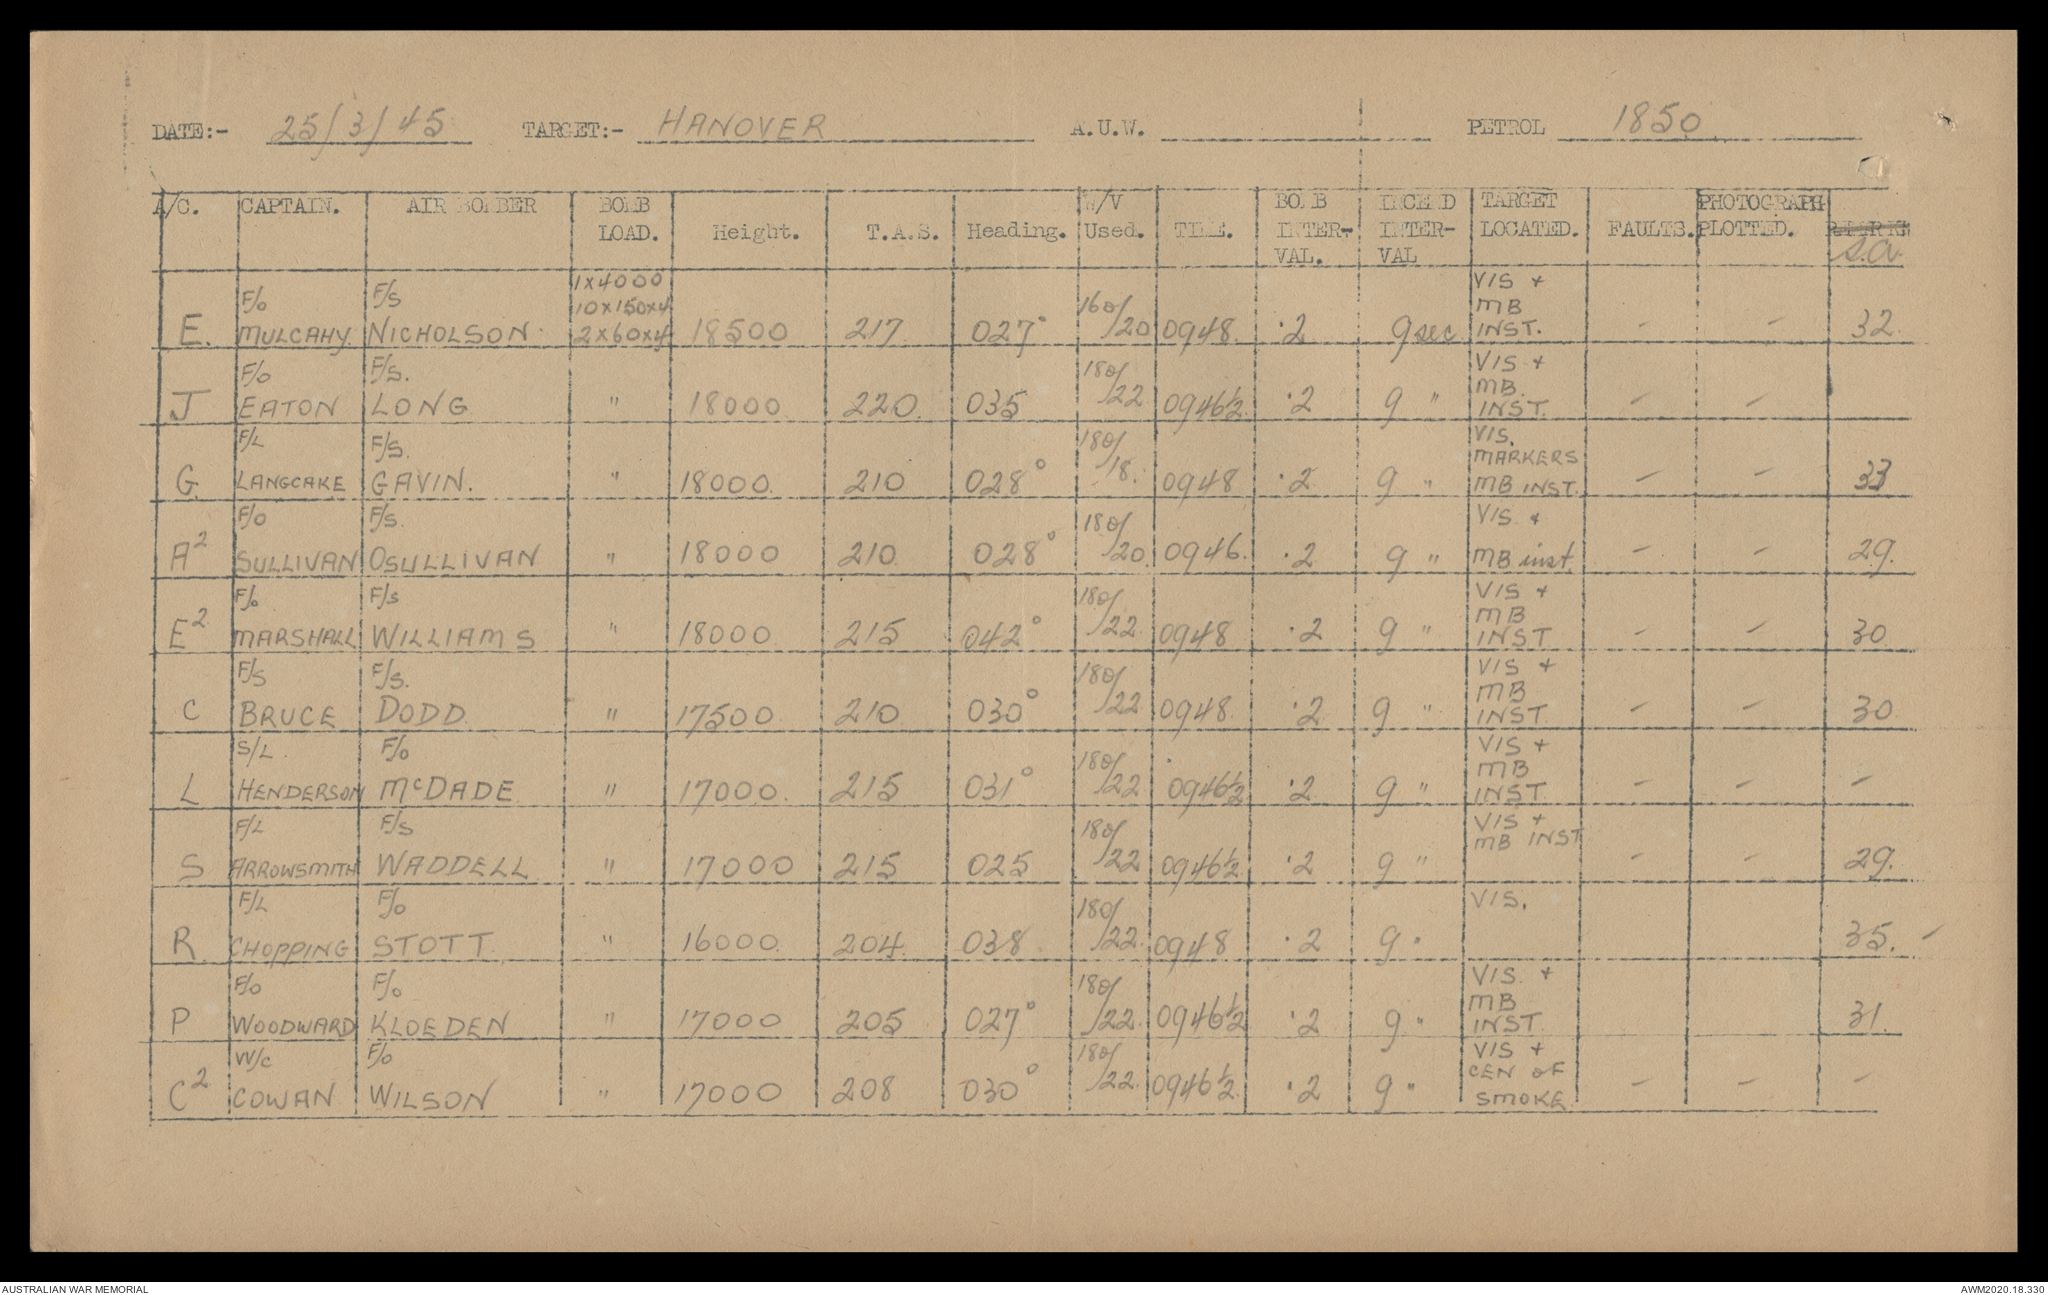 DATE:- 25/3/45 TARGET:- HANOVER A.U.W. PETROL 1850
A/C. CAPTAIN. AIR BOMBER BOMB LOAD. Height. T.A.S. Heading. W/V Used. TIME. BOMB INTER-VAL. INCEND INTER-VAL TARGET LOCATED. FAULTS. PHOTOGRAPH PLOTTED. S.A.
E. F/O MULCAHY. F/S NICHOLSON 1x4000 10x150x4 2x60x4 18500 217 027° 160/20 0948. .2 9 sec VIS + MB INST. - - 32.
J F/O EATON F/S. LONG " 18000 220. 035 180/22 0946½ .2 9 " VIS + MB. INST. - -
G. F/L LANGCAKE F/S. GAVIN. " 18000 210 028° 180/18. 0948 .2 9 " VIS. MARKERS MB INST. - - 33
A2 F/O SULLIVAN F/S. OSULLIVAN " 18000 210 028° 180/20. 0946. .2 9 " VIS. + MB inst. - - 29.
E2 F/O MARSHALL F/S WILLIAMS " 18000 215 042° 180/22 0948 .2 9 " VIS + MB INST - - 30.
C F/S BRUCE F/S. DODD. " 17500 210 030° 180/22 0948. .2 9 " VIS + MB INST - - 30.
L S/L HENDERSON F/O McDADE " 17000. 215 031° 180/22 0946½ .2 9 " VIS + MB INST - - -
S F/L ARROWSMITH F/S WADDELL " 17000 215 025 180/22 0946½ .2 9 " VIS + MB INST - - 29.
R. F/L CHOPPING F/O STOTT " 16000 204. 038 180/22. 0948 .2 9 " VIS. 35. -
P F/O WOODWARD F/O KLOEDEN " 17000 205 027° 180/22. 0946½ .2 9 " VIS. + MB INST. 31.
C2 W/C COWAN F/O WILSON " 17000 208 030° 180/22. 0946½ .2 9 " VIS + CEN OF SMOKE - - -
AUSTRALIAN WAR MEMORIAL AWM2020.18.330